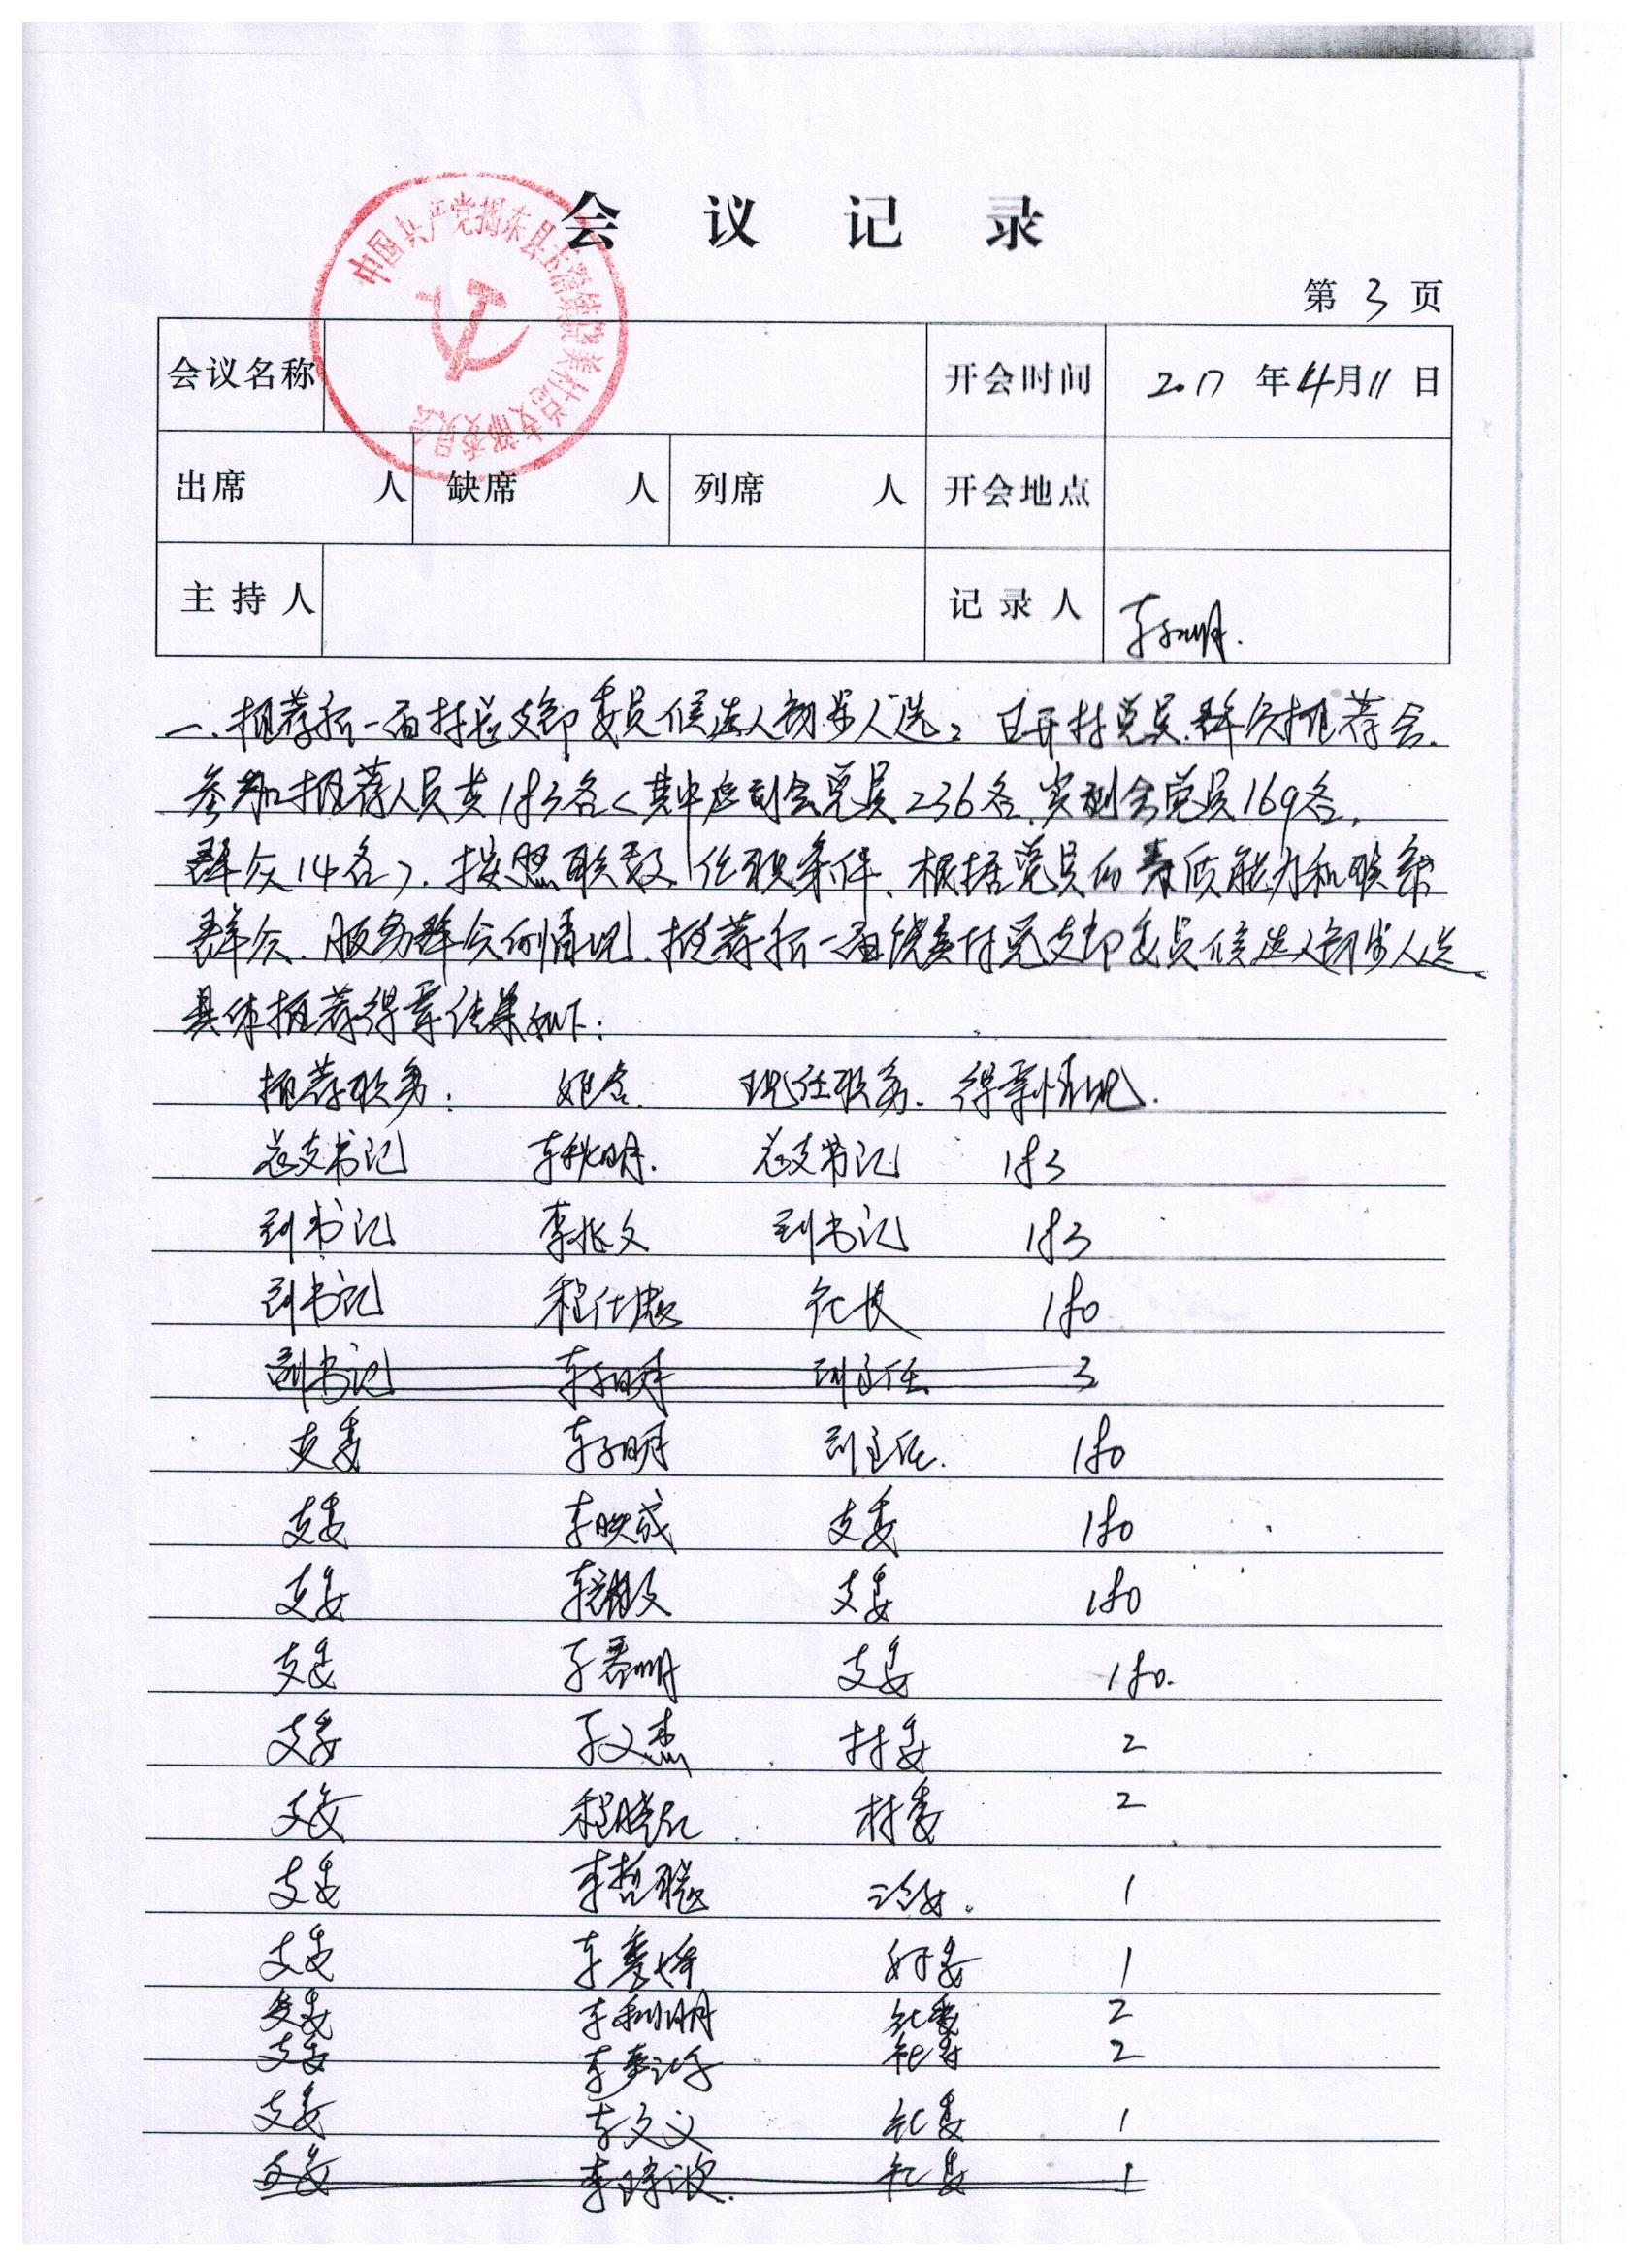 会议记录
第 3 页
中国共产党揭东县玉滘镇 美村总支部委员会
会议名称 开会时间 2017 年 4 月 11 日
出席 人 缺席 人 列席 人 开会地点
主持人 记录人
一、推荐新一届村总支部委员候选人初步人选。召开村党员、群众推荐会.
参加推荐人员共183名(其中应到会党员236名、实到会党员169名,
群众14名). 按照职数、任职条件、根据党员的素质能力和联系
群众、服务群众的情况、推荐新一届 美村党支部委员候选人初步人选、
具体推荐得票结果如下:
推荐职务: 姓名 现任职务. 得票情况.
总支书记 总支书记 183
副书记 李兆文 副书记 183
副书记 程仕忠 社长 180
副书记 副主任 3
支委 副主任. 180
支委 李映成 支委 180
支委 支委 180
支委 支委 180.
支委 李文杰 村委 2
支委 程晓红 村委 2
支委 李哲聪 1
支委 1
支委 李利明 社委 2
支委 2
支委 李文义 社委 1
支委 社委 1